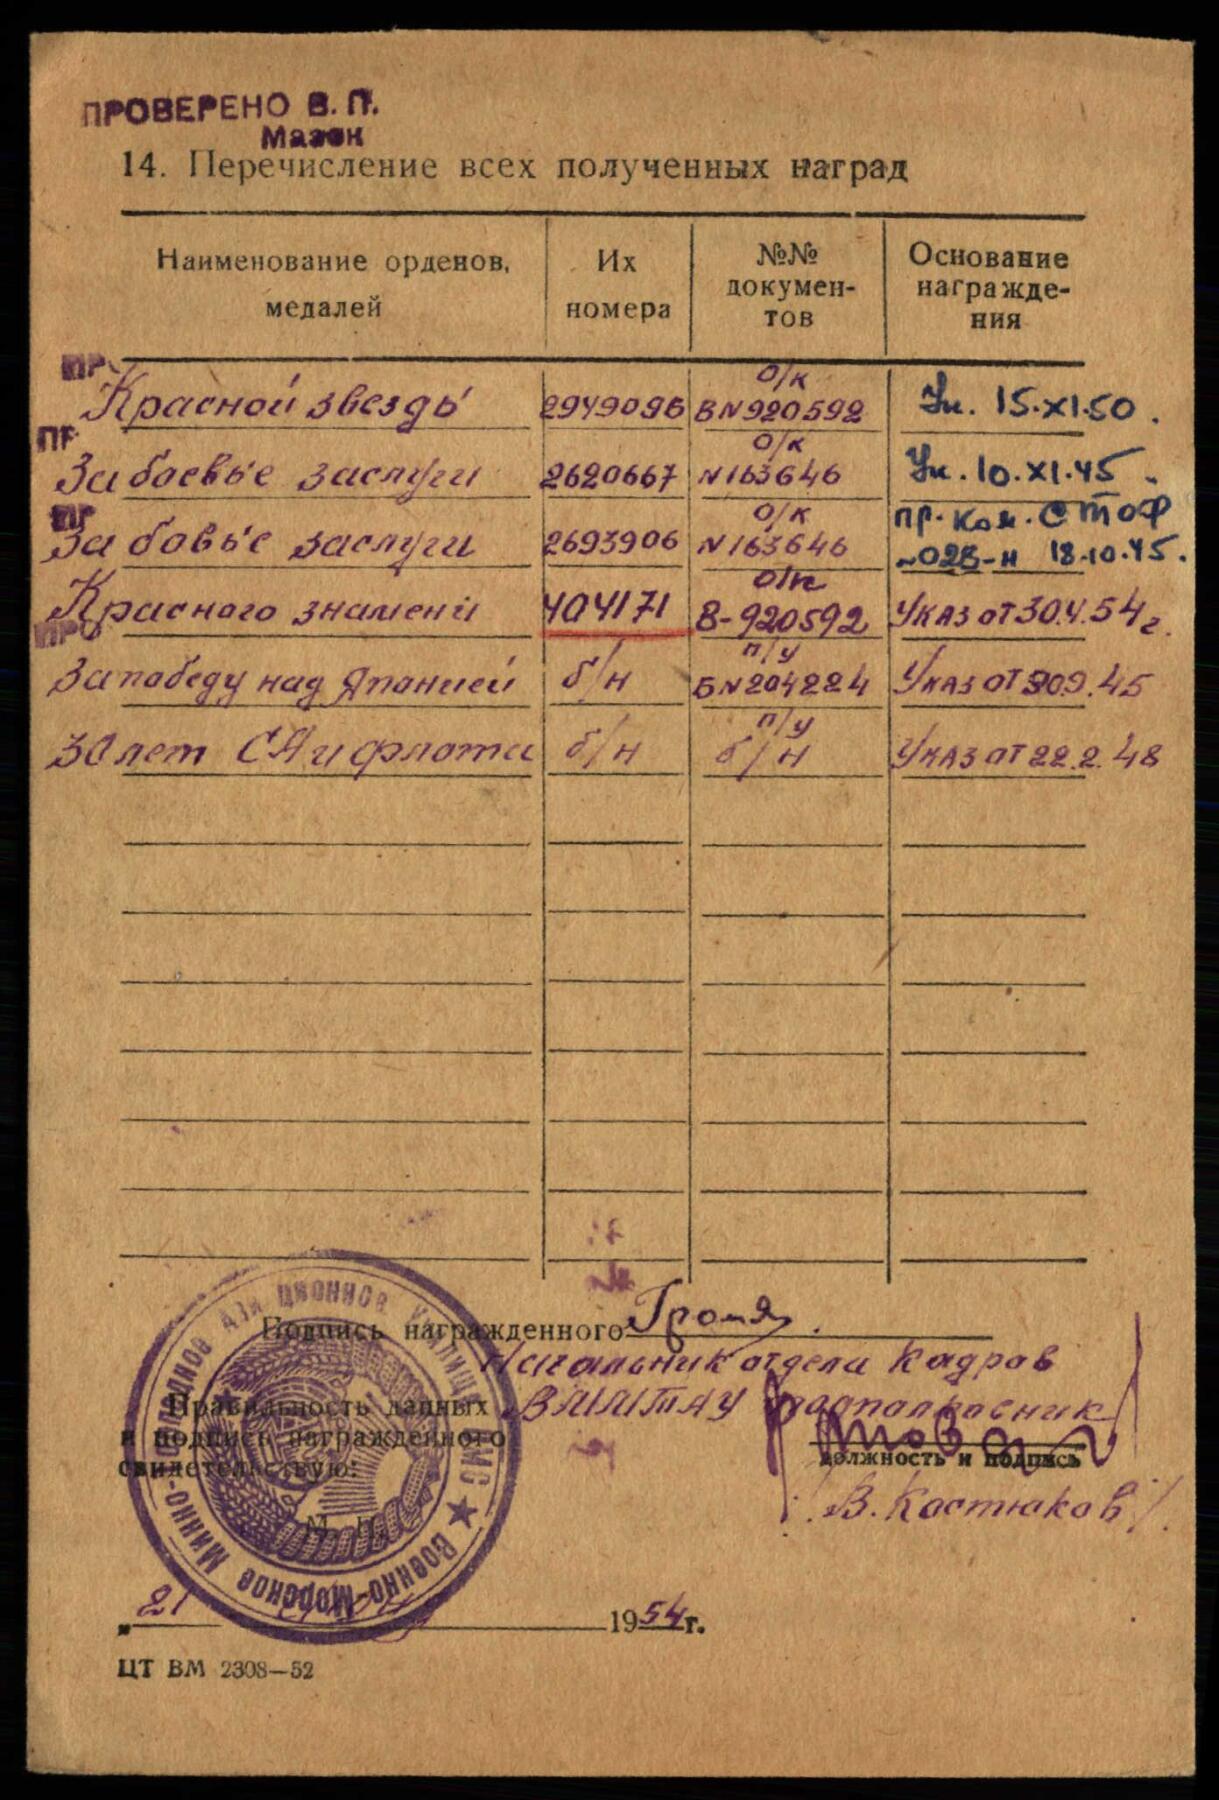 ПРОВЕРЕНО В. П.
Мазок
14. Перечисление всех полученных наград
Наименование орденов, медалей
Их номера
№№ докумен-тов
Основание награжде-ния
ПР
Красной звезды 2949096 о/к ВN920592 Ук. 15.XI.50.
ПР
За боевые заслуги 2620667 о/к N163646 Ук. 10.XI.45.
ПР
За бовые заслуги 2693906 о/к N163646 пр. ком. СТОФ
№028-н 18.10.45.
Красного знамени 404171 о/к В-920592 Указ от 30.4.54г.
ПРО
За победу над Японией б/н п/у БN204224 Указ от 30.9.45
30 лет СА и флота б/н п/у б/н Указ от 22.2.48
Подпись награжденного
Начальник отдела кадров
ВММТАУ подполковник
Правильность данных
и подпись награжденного
свидетельствую:
должность и подпись
/В. Костюков/
М. П.
Военно-Морское Минно-
Училище
ВМС
„21
1954г.
ЦТ ВМ 2308—52